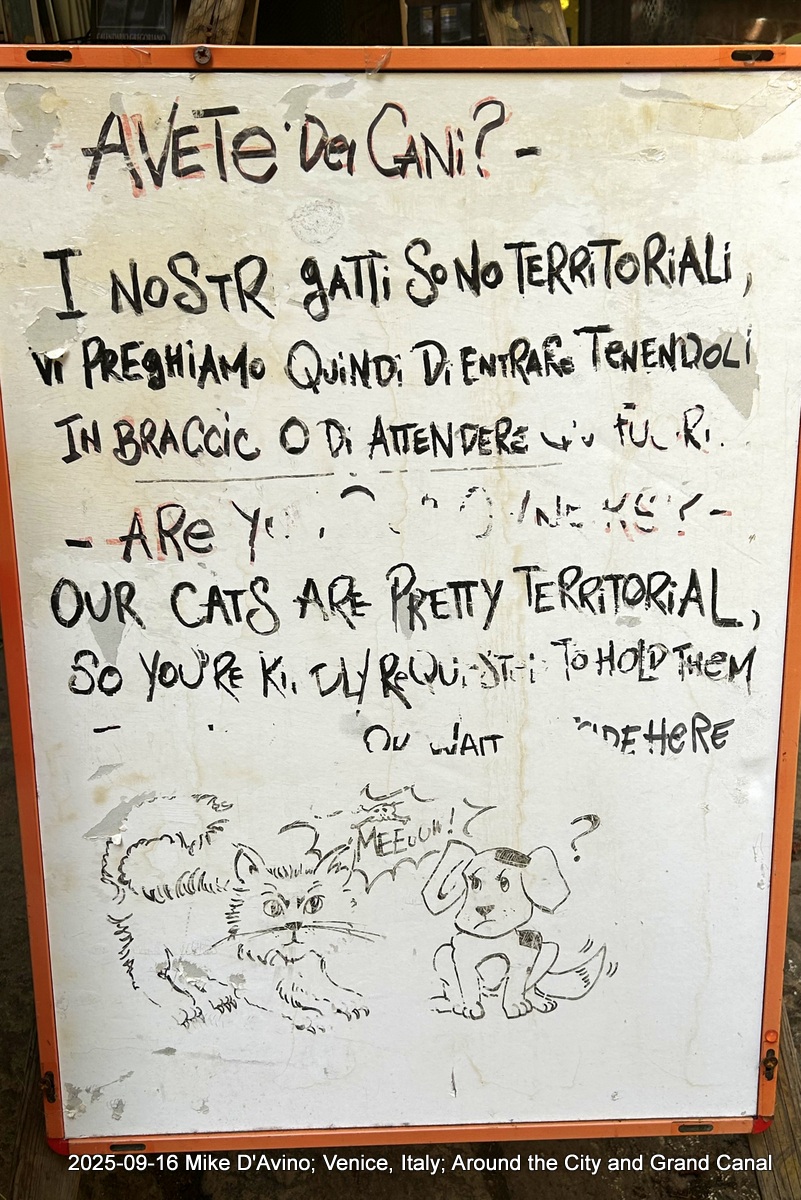 AVETE DEI CANI? -
I NOSTRI gATTI SONO TERRITORIALI,
VI PREgHIAMO QUINDI DI ENTRARE TENENDOLI
IN BRACCIO O DI ATTENDERE FUORI.
- ARE YOU
OUR CATS ARE PRETTY TERRITORIAL,
SO YOU'RE KINDLY REQUESTED TO HOLD THEM
WAIT HERE
MEEOUW!
?
2025-09-16 Mike D'Avino; Venice, Italy; Around the City and Grand Canal